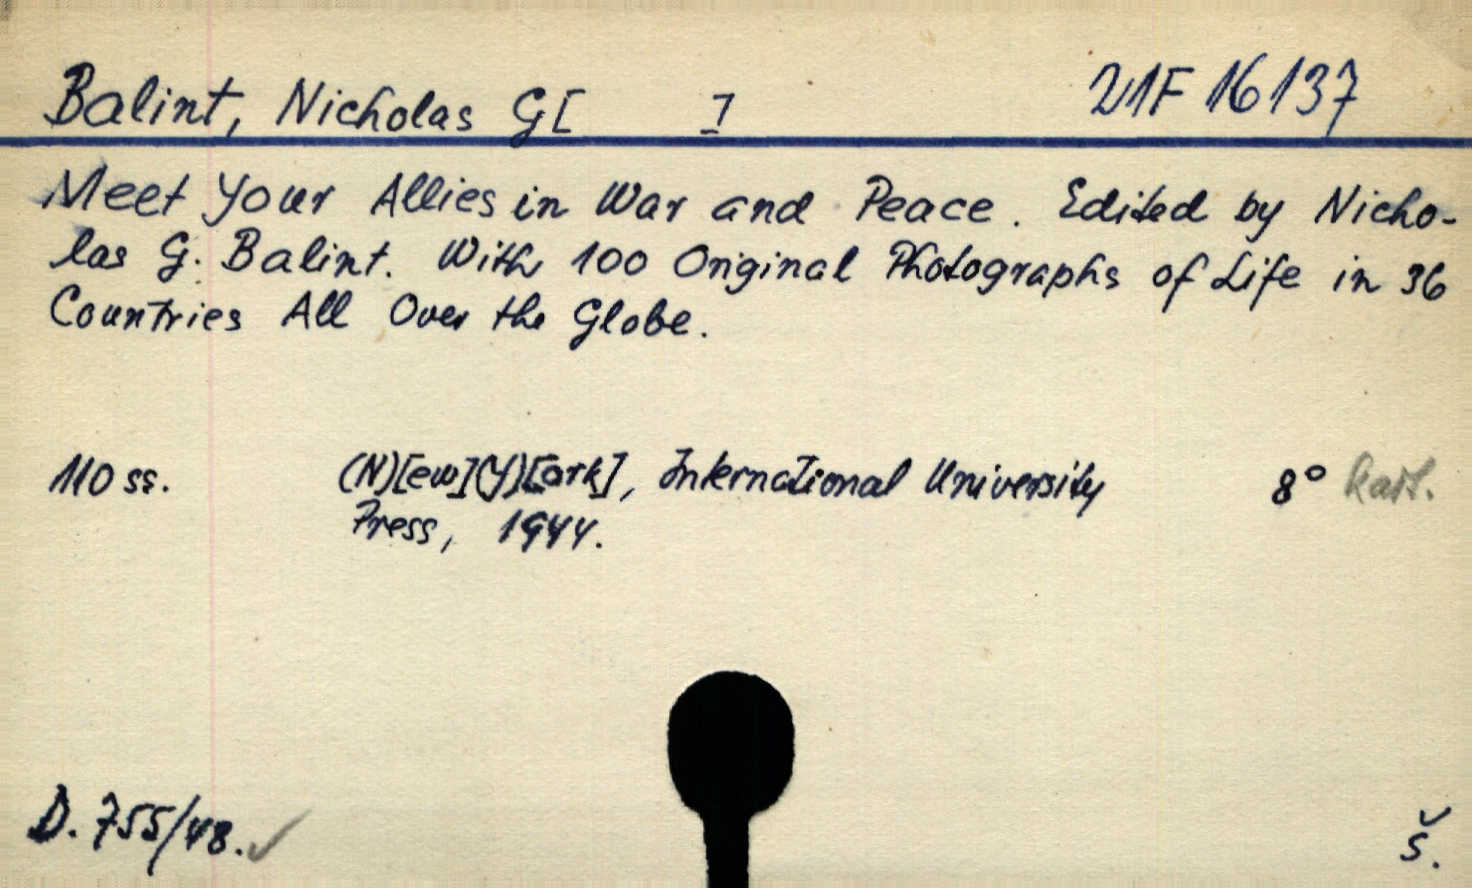 Balint, Nicholas G[ ] 21F 16137
Meet Your Allies in War and Peace. Edited by Nicho-
las G. Balint. With 100 Original Photographs of Life in 36
Countries All Over the Globe.
110 ss. (N)[ew](Y)[ork], International University 8° kart.
Press, 1944.
D. 755/48. ✓ š.